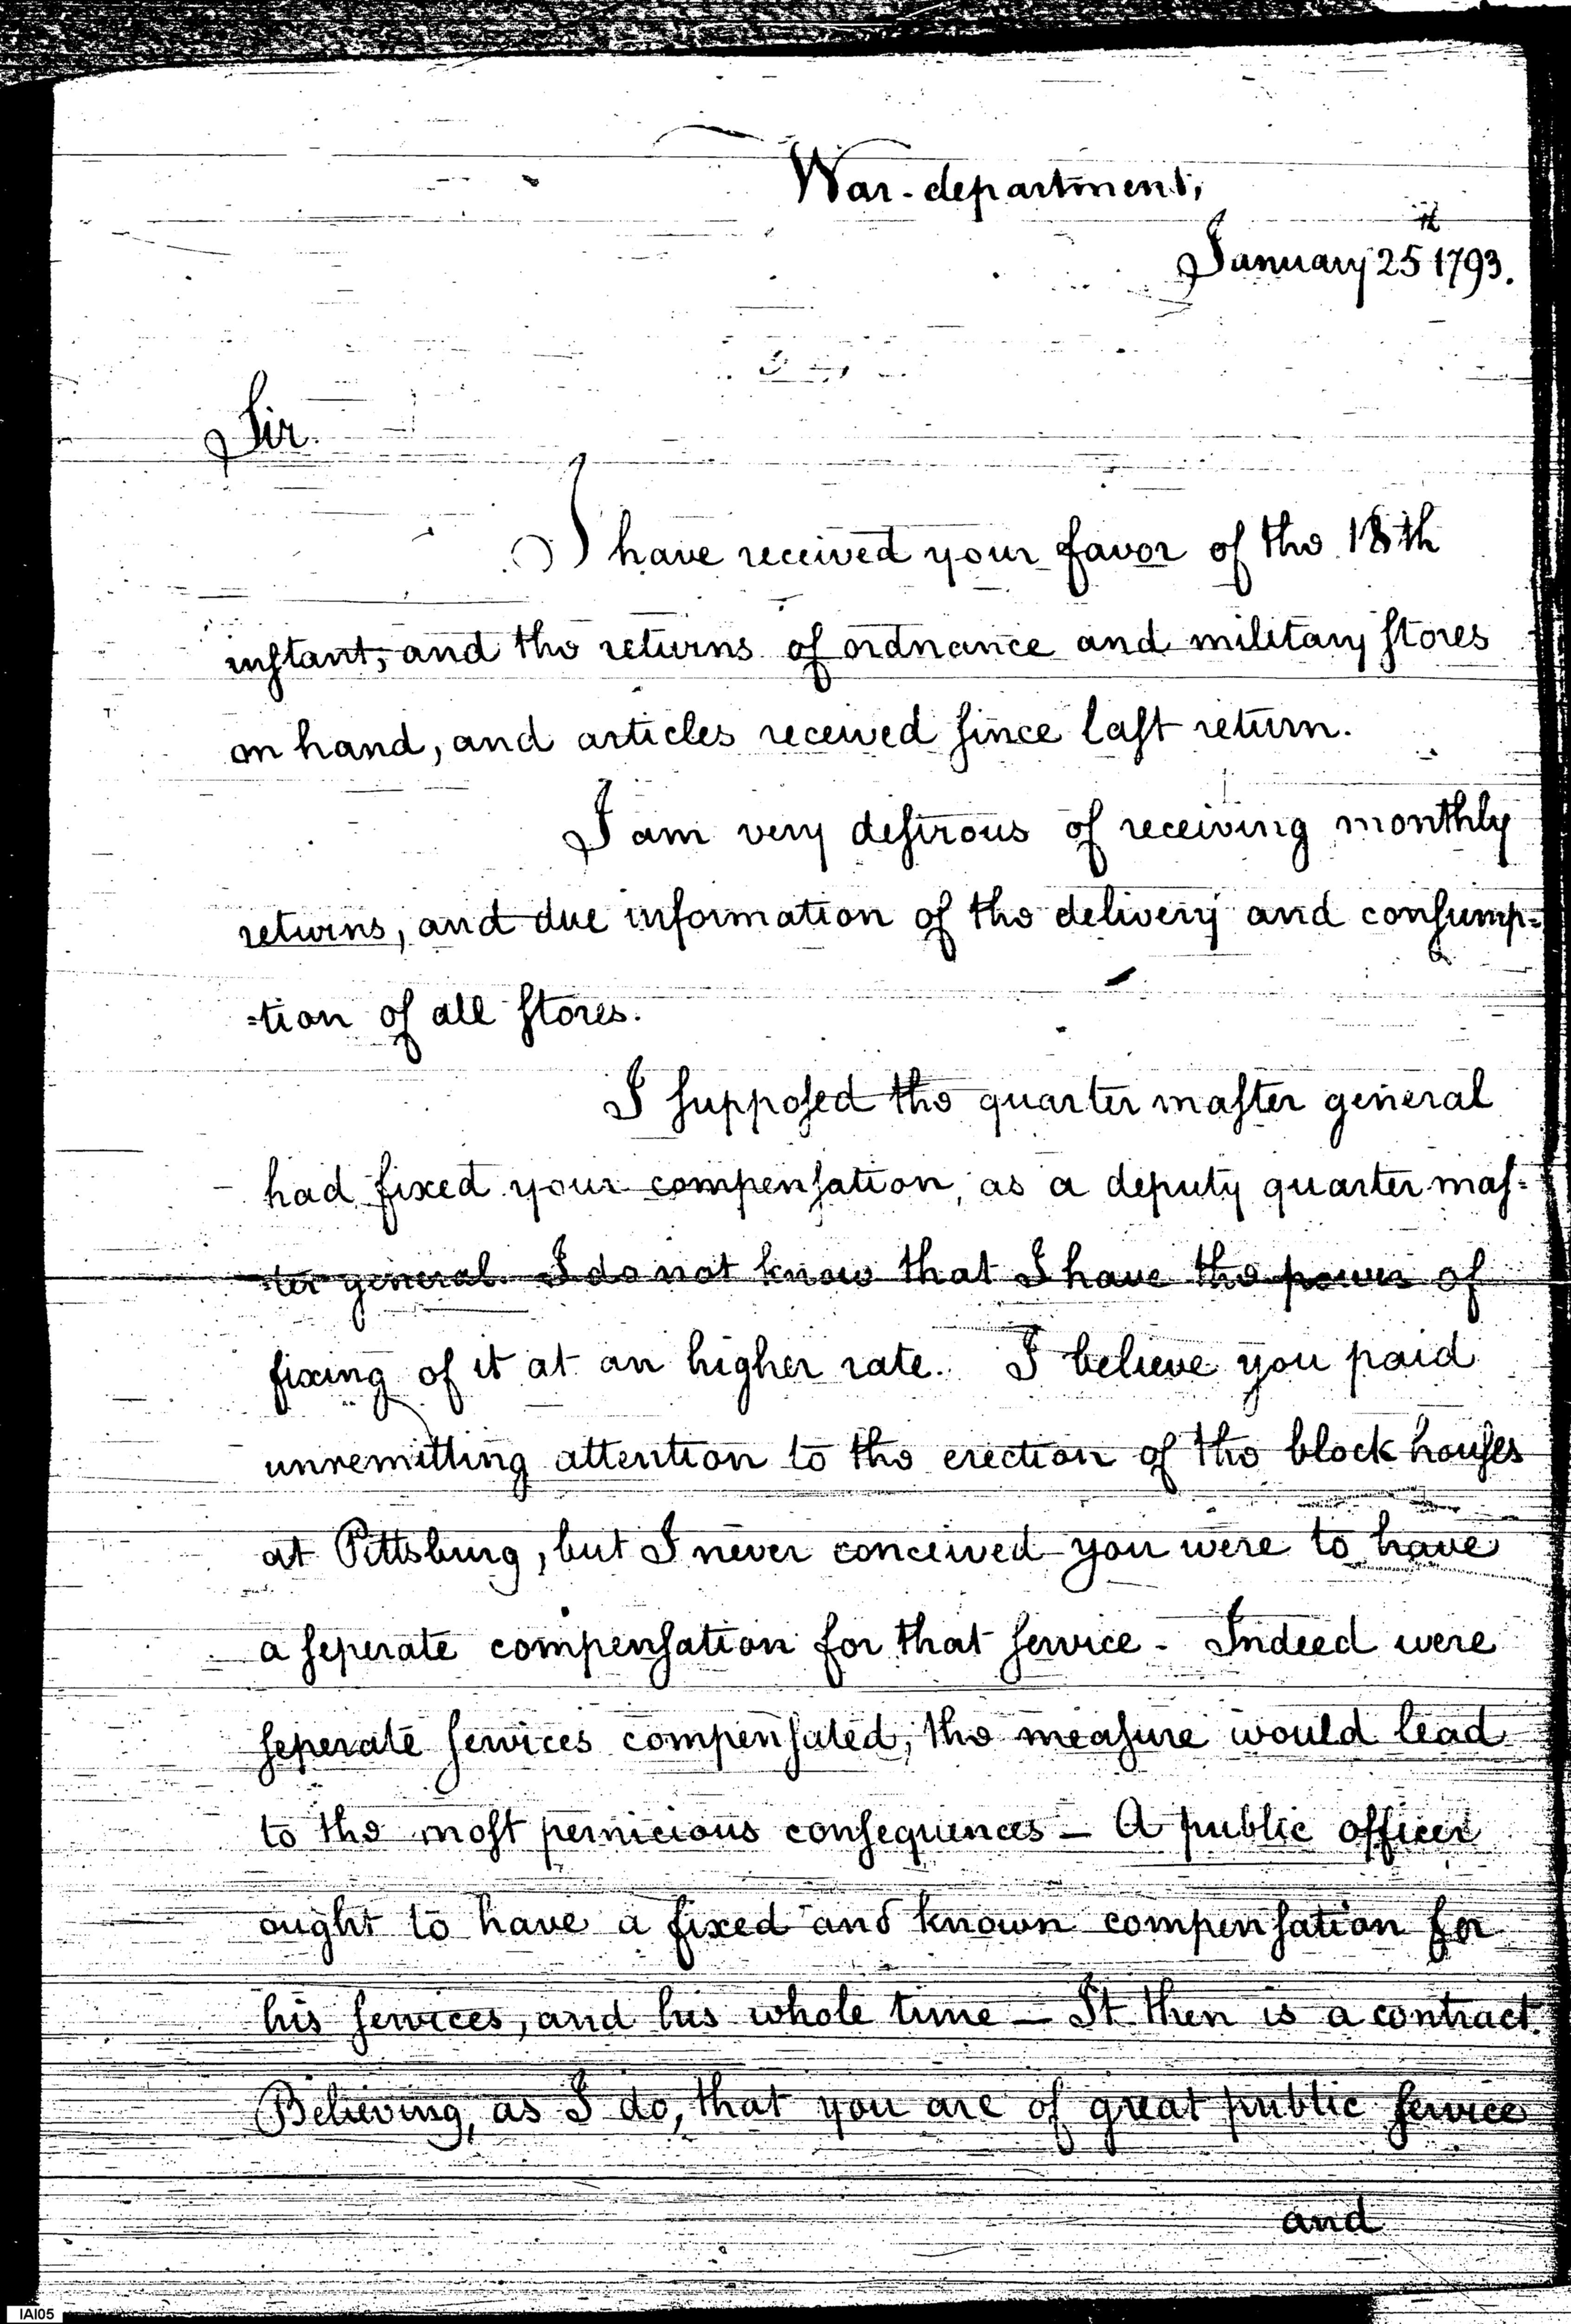 War-department,
January 25th 1793.
Sir.
I have received your favor of the 18th
instant, and the returns of ordnance and military stores
on hand, and articles received since last return.
I am very desirous of receiving monthly
returns, and due information of the delivery and consump=
=tion of all stores.
I supposed the quarter master general
had fixed your compensation, as a deputy quarter mas=
=ter general. I do not know that I have the power of
fixing of it at an higher rate. I believe you paid
unremitting attention to the erection of the block houses
at Pittsburg, but I never conceived you were to have
a seperate compensation for that service - Indeed were
seperate services compensated, the measure would lead
to the most pernicious consequences - A public officer
ought to have a fixed and known compensation for
his services, and his whole time - It then is a contract.
Believing, as I do, that you are of great public service
and
IAI05